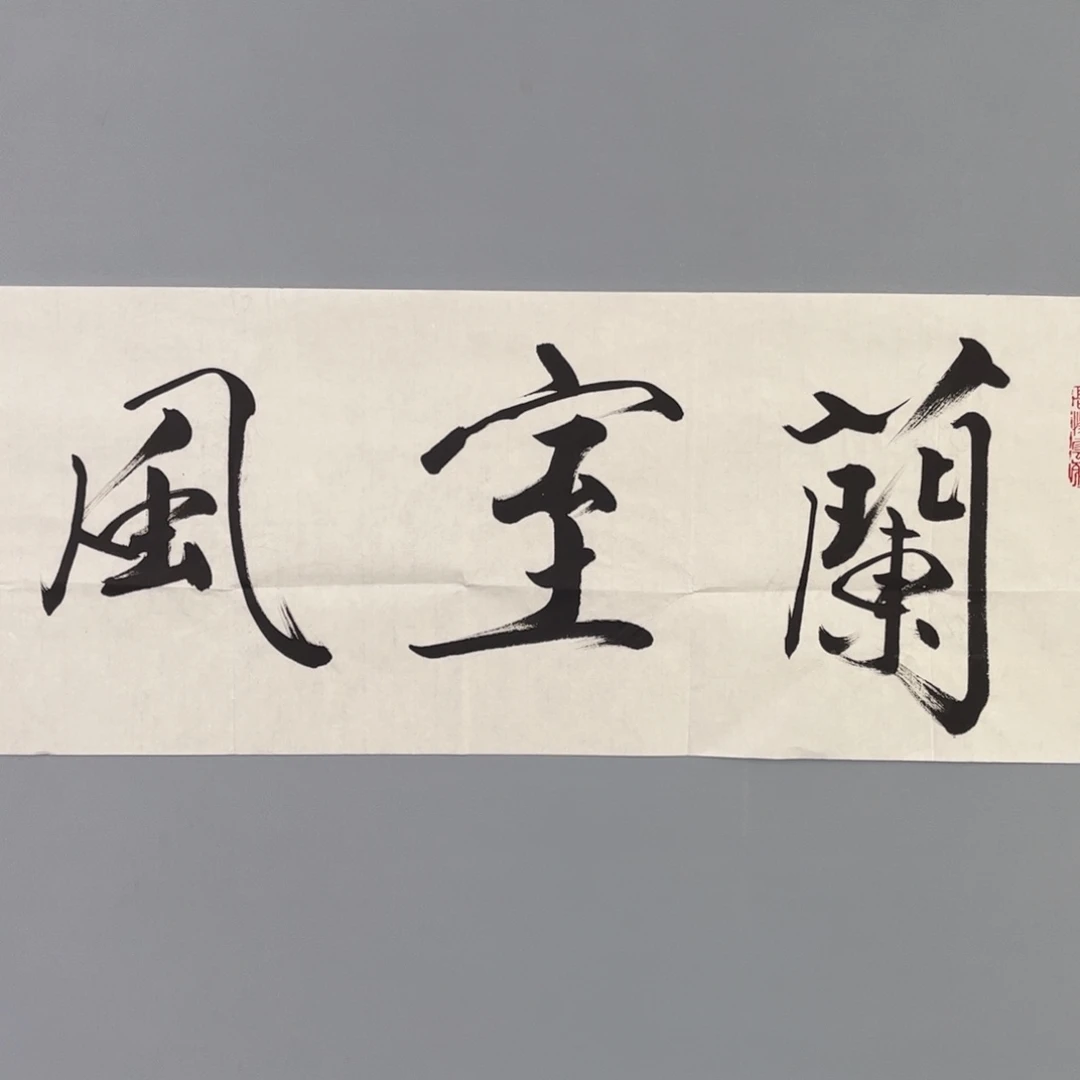 蘭室風